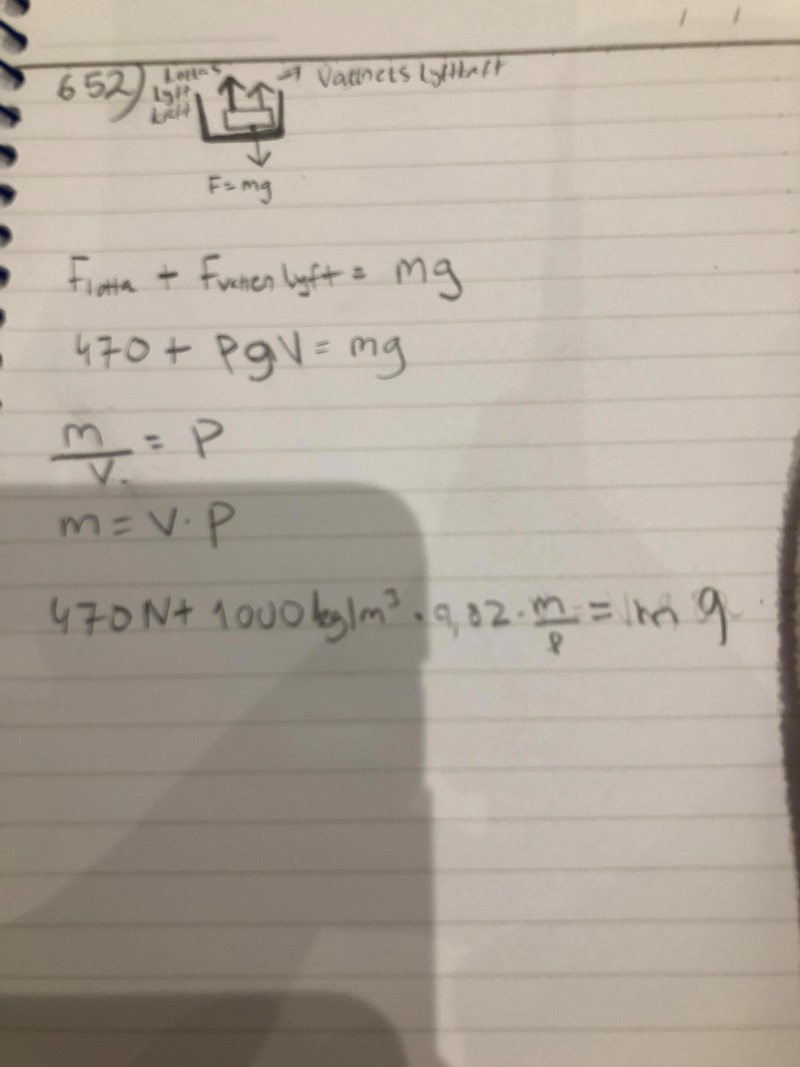 652) Lottas lyftkraft → Vattnets lyftkraft
F=mg
Flotta + Fvatten lyft = mg
470 + ρgV = mg
m/V. = ρ
m = V · ρ
470N + 1000kg/m³ · 9,82 · m/ρ = mg